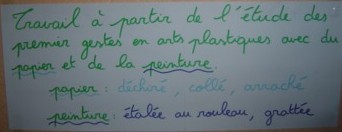 Travail à partir de l'étude des
premier gestes en arts plastiques avec du
papier et de la peinture.
papier : déchiré, collé, arraché
peinture : étalée au rouleau, grattée